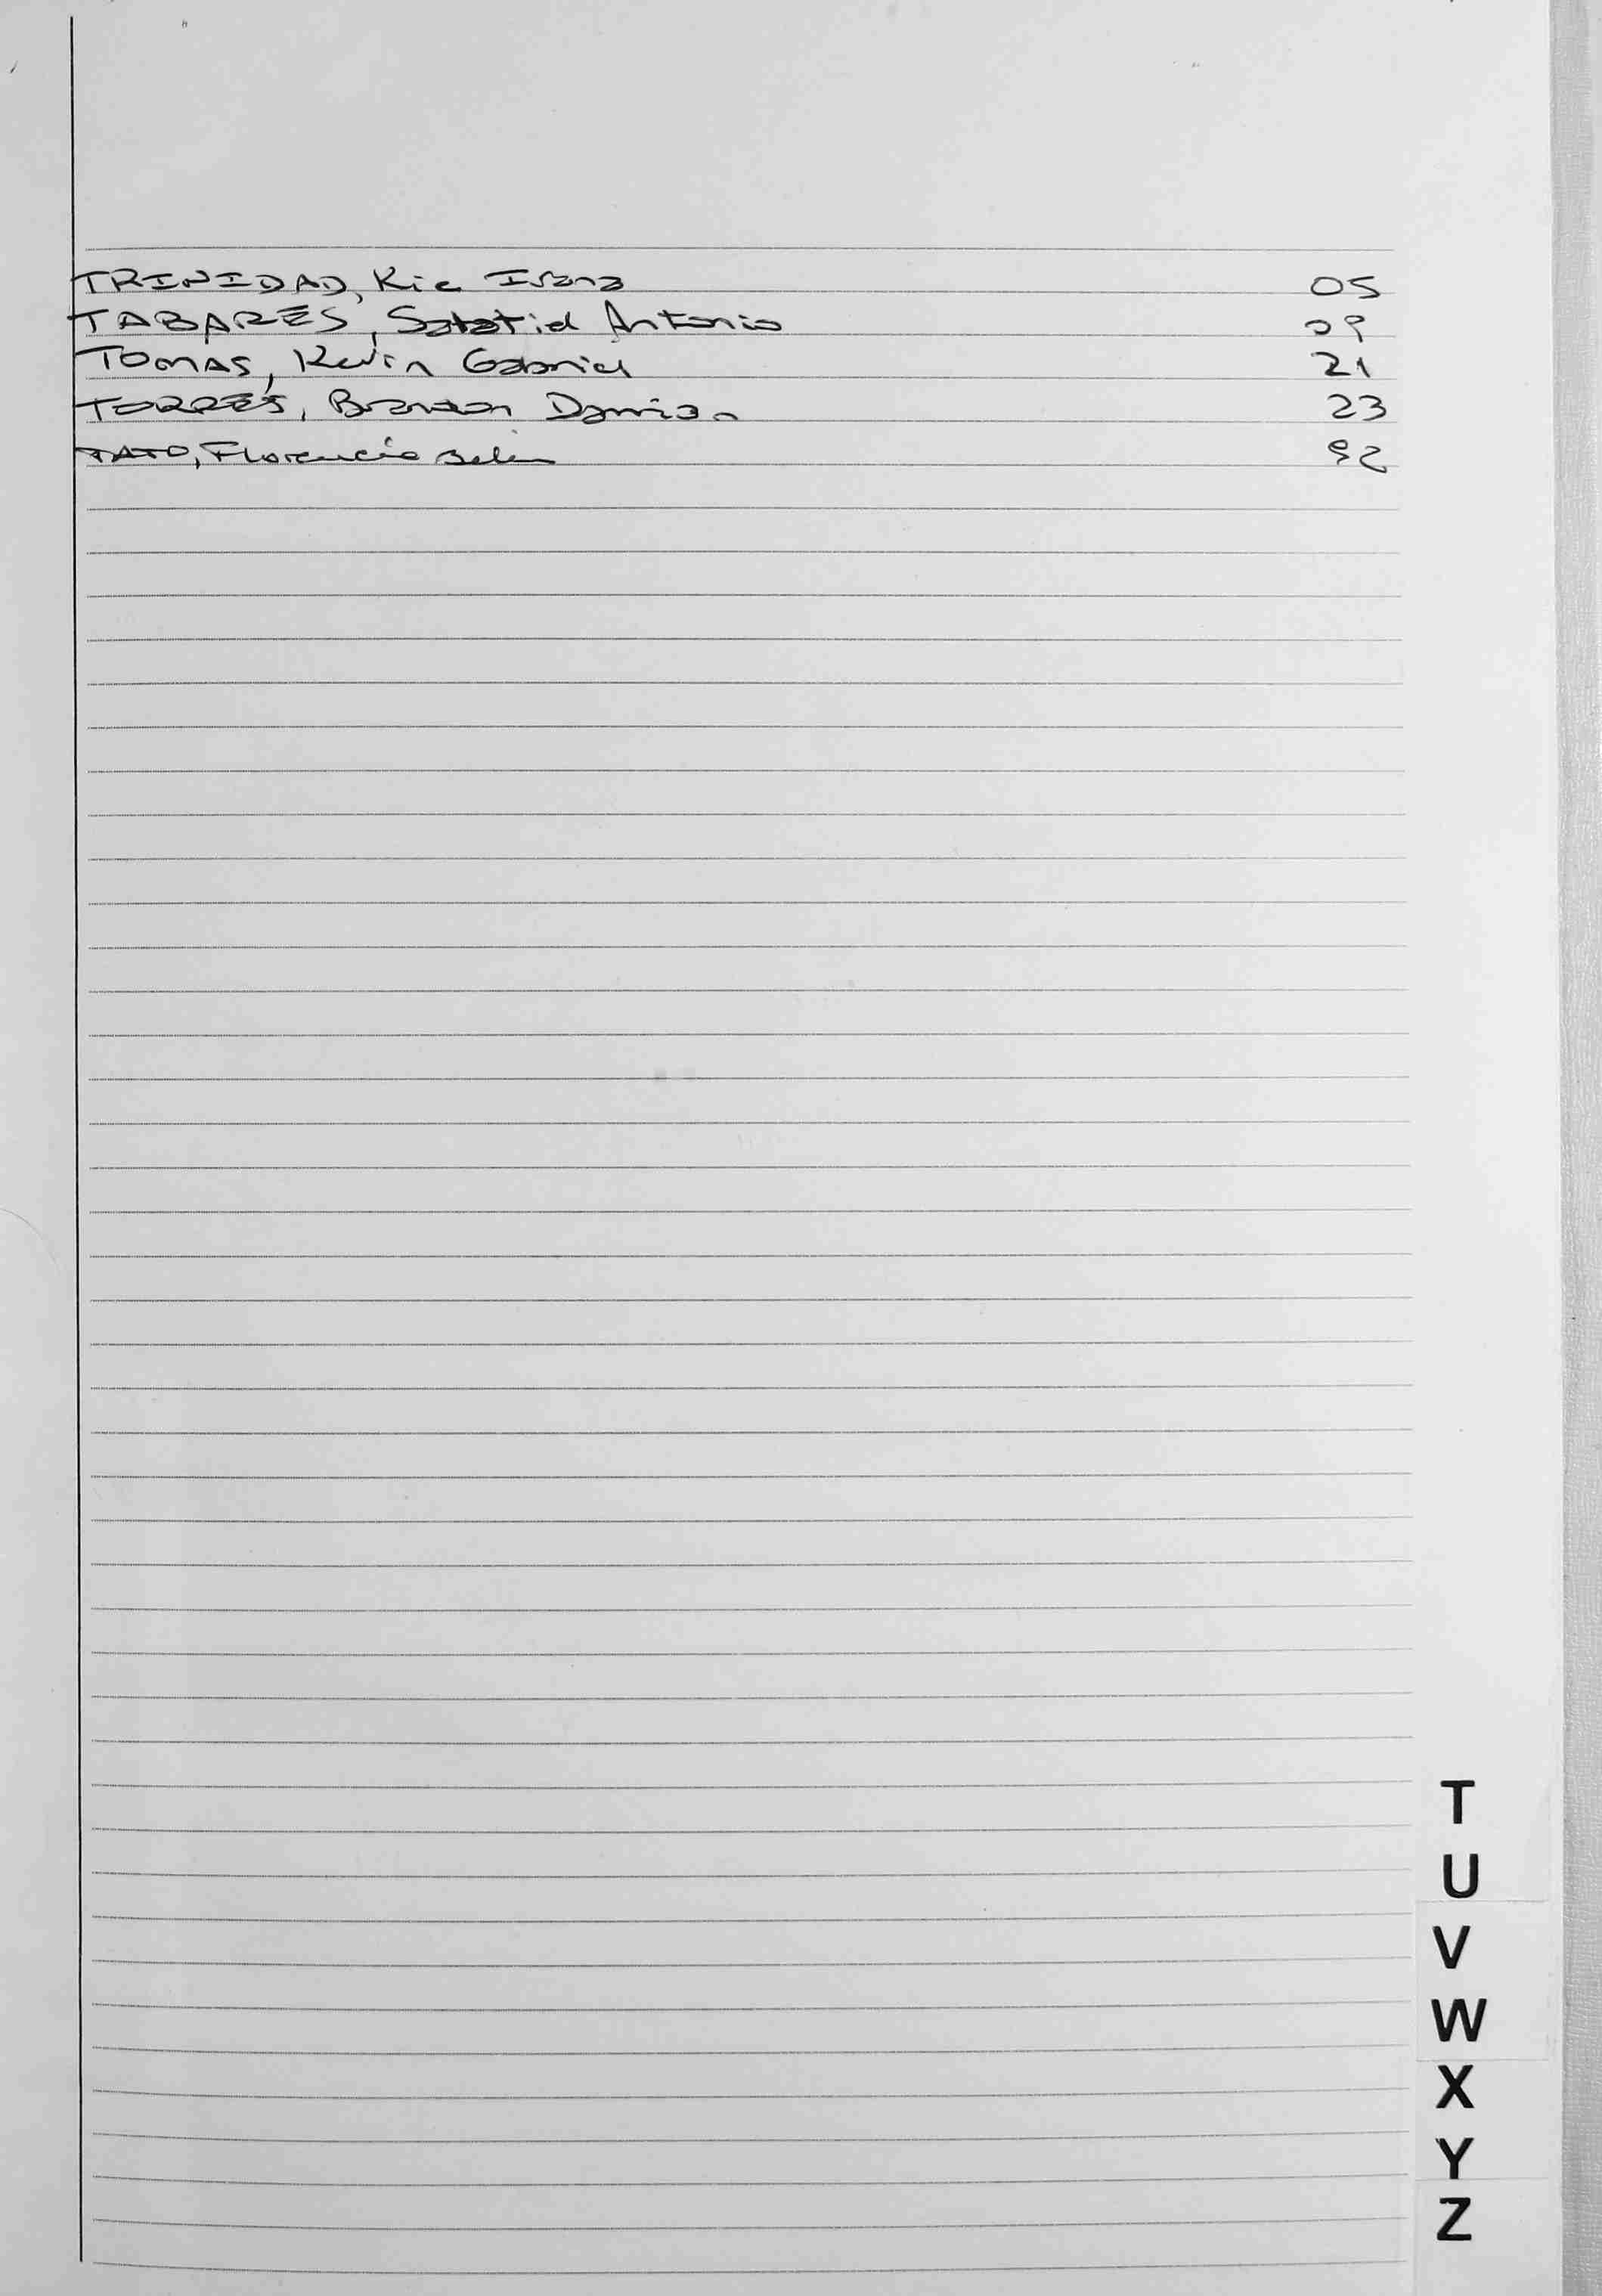 TRINIDAD, Kia
05
TABARES, Antonio
09
TOMAS, Kevin Gabriel
21
TORRES, Brandon Damian
23
TATO, Florencia Belen
92
T
U
V
W
X
Y
Z